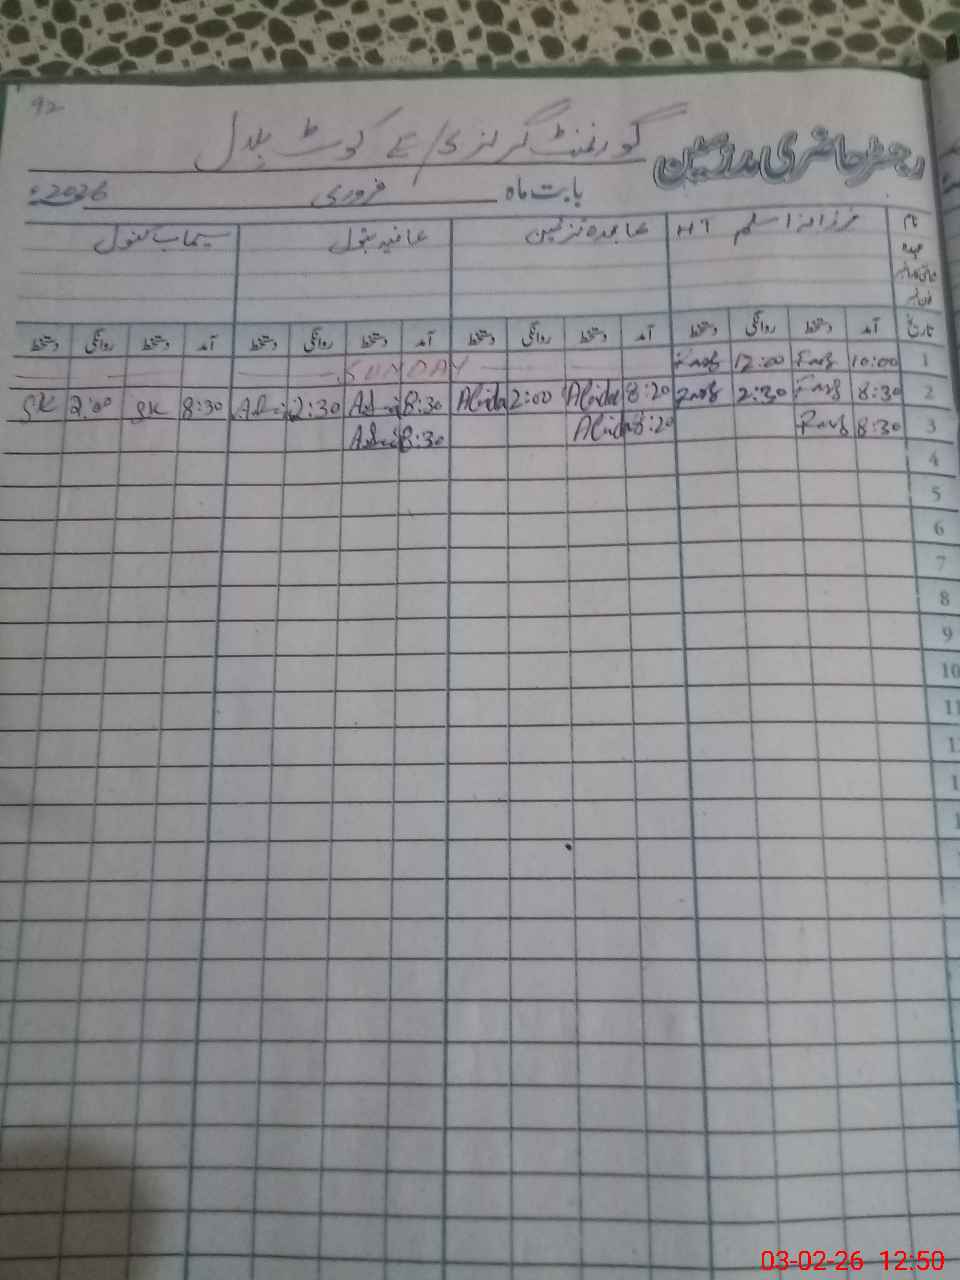 92
گورنمنٹ گرلز ی/ے کوٹ بلال
رجسٹر حاضری مدرسین
بابت ماہ فروری 2026ء
نام فرزانہ اسلم HT عابدہ نرگس عافیہ بتول سیماب کنول
عہدہ
تاریخ آمد دستخط روانگی دستخط آمد دستخط روانگی دستخط آمد دستخط روانگی دستخط آمد دستخط روانگی دستخط
1 10:00 Farz 12:00 Farz SUNDAY
2 8:30 Farz 2:30 Farz 8:20 Abida 2:00 Abida 8:30 2:30 8:30 SK 2:00 SK
3 8:30 Farz 8:20 Abida 8:30
4
5
6
7
8
9
10
03-02-26 12:50